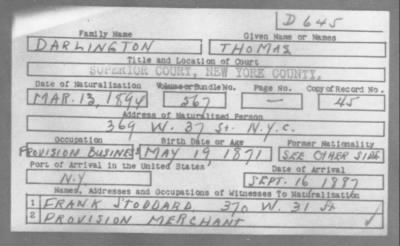 D 645
Family Name Given Name or Names
DARLINGTON THOMAS
Title and Location of Court
SUPERIOR COURT, NEW YORK COUNTY.
Date of Naturalization Volume or Bundle No. Page No. Copy of Record No.
MAR. 13, 1894 567 — 45
Address of Naturalized Person
369 W. 37 St. N.Y.C.
Occupation Birth Date or Age Former Nationality
PROVISION BUSINESS MAY 19 1871 SEE OTHER SIDE
Port of Arrival in the United States Date of Arrival
N.Y SEPT. 16 1887
Names, Addresses and Occupations of Witnesses To Naturalization
1 FRANK STODDARD 370 W. 31 St
2 PROVISION MERCHANT